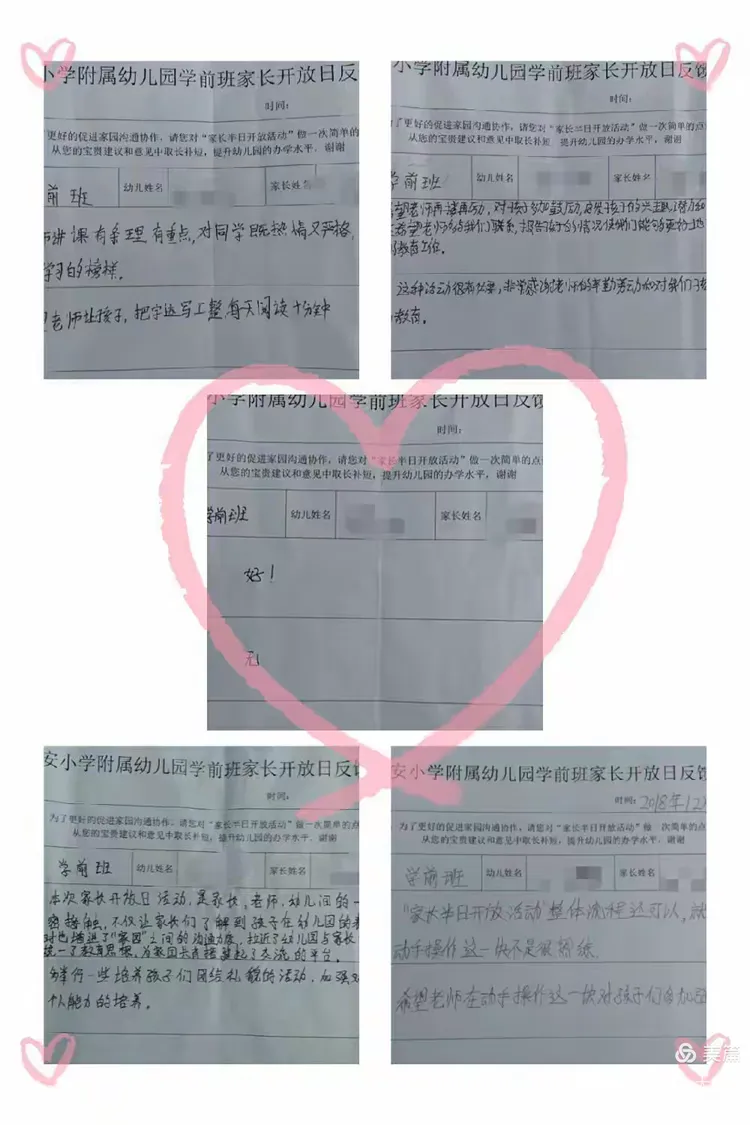 小学附属幼儿园学前班家长开放日反
时间：
更好的促进家园沟通协作，请您对“家长半日开放活动”做一次简单的
从您的宝贵建议和意见中取长补短，提升幼儿园的办学水平，谢谢
前班 幼儿姓名 家长姓名
讲课有条理，有重点，对同学既热情又严格，
学习的榜样。
老师让孩子，把字迹写工整，每天阅读十分钟
小学附属幼儿园学前班家长开放日反馈
时间：
了更好的促进家园沟通协作，请您对“家长半日开放活动”做一次简单的点
从您的宝贵建议和意见中取长补短，提升幼儿园的办学水平，谢谢
学前班 幼儿姓名 家长姓名
希望老师
希望老师多给我们联系，报告孩子的情况使我们能够更好地
教育工作。
这种活动很有必要，非常感谢老师的辛勤劳动和对我们子
教育。
小学附属幼儿园学前班家长开放日反馈
时间：
了更好的促进家园沟通协作，请您对“家长半日开放活动”做一次简单的点
从您的宝贵建议和意见中取长补短，提升幼儿园的办学水平，谢谢
学前班 幼儿姓名 家长姓名
好！
无
安小学附属幼儿园学前班家长开放日反馈
时间：
为了更好的促进家园沟通协作，请您对“家长半日开放活动”做一次简单的点
从您的宝贵建议和意见中取长补短，提升幼儿园的办学水平，谢谢
学前班 幼儿姓名 家长姓名
本次家长开放日活动，是家长，老师，幼儿间的一
密接触，不仅让家长们了解到孩子在幼儿园的表
时也增进了“家园”之间的沟通力度，拉近了幼儿园与家长
统一了教育思想，为家园共育搭建起了交流的平台。
多举行一些培养孩子们团结礼貌的活动，加强
个人能力的培养。
安小学附属幼儿园学前班家长开放日反馈
时间：2018年12
为了更好的促进家园沟通协作，请您对“家长半日开放活动”做一次简单的点
从您的宝贵建议和意见中取长补短，提升幼儿园的办学水平，谢谢
学前班 幼儿姓名 家长姓名
“家长半日开放活动整体流程还可以，就
动手操作这一块不是很熟练
希望老师在动手操作这一块对孩子们多加强
美篇